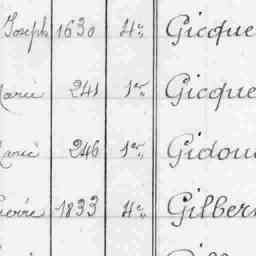 Joseph 1630 4e Gicque
Marie 241 1er Gicque
Marie 246 1er Gidou
Pierre 1833 4e Gilber